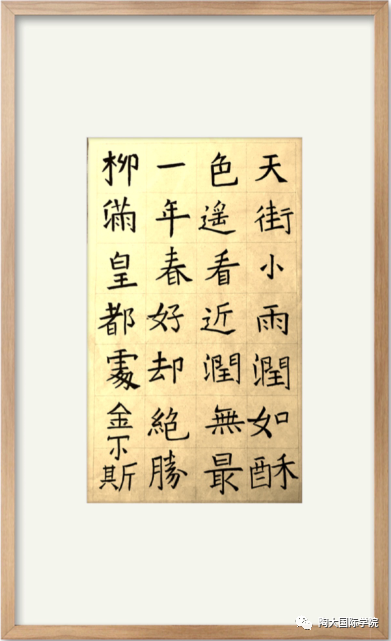 天街小雨潤如酥
色遙看近潤無最
一年春好却絕勝
柳滿皇都處金不斯
陶大国际学院